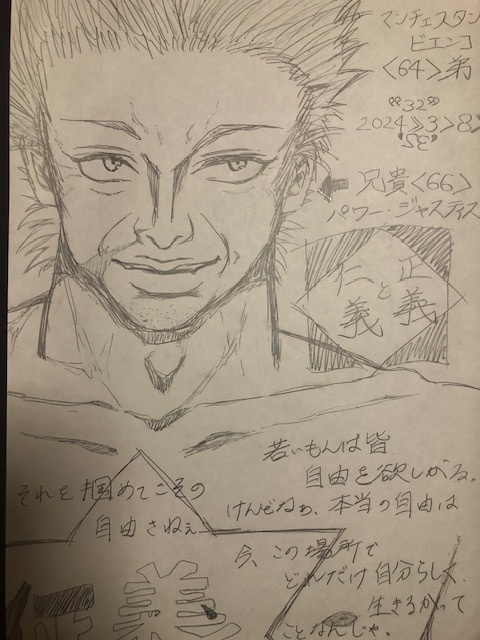 マンチェスタン
ビエンコ
〈64〉弟
“32”
2024》3》8》
兄貴〈66〉
パワー・ジャスティス
仁義
と
正義
若いもんは皆
自由を欲しがる。
けんどねぉ、本当の自由は
今、この場所で
どれだけ自分らしく、
生きるかって
ことなんじゃ。
それを掴めてこその
自由さねぇ